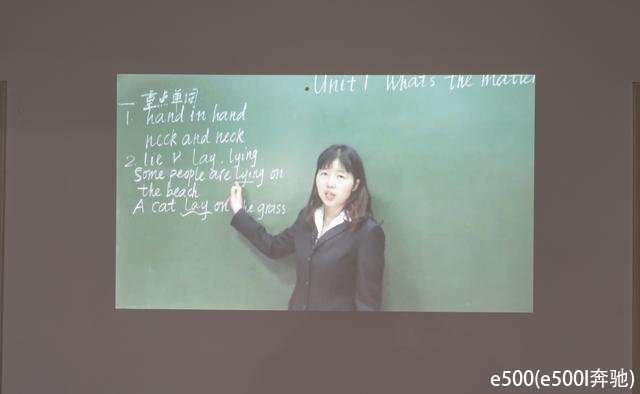 Unit 1 What's the matter
一 重点单词
1. hand in hand
neck and neck
2. lie v lay, lying
Some people are lying on
the beach
A cat lay on the grass
e500(e500l奔驰)